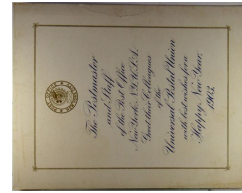 The Postmaster
and Staff
of the Post Office
New York, N.Y., U.S.A.
Greet their Colleagues
of the
Universal Postal Union
with best wishes for a
Happy New Year,
1903.